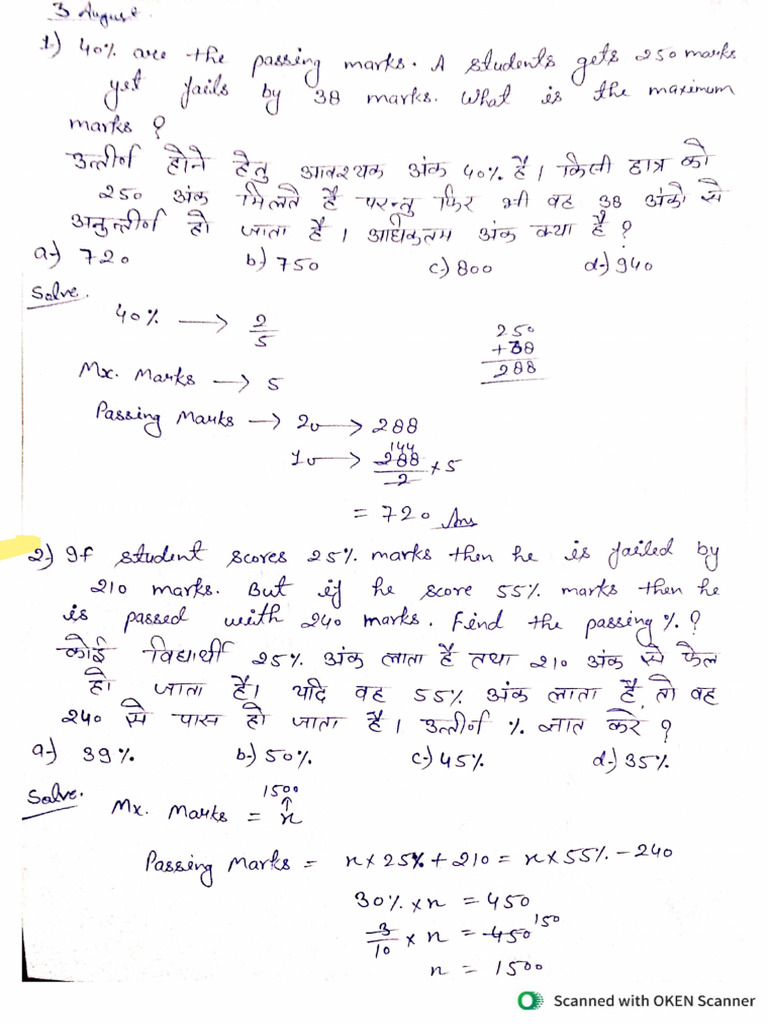 3 August
1.) 40% are the passing marks. A students gets 250 marks
yet fails by 38 marks. What is the maximum
marks ?
उत्तीर्ण होने हेतु आवश्यक अंक 40% है। किसी छात्र को
250 अंक मिलते है परन्तु फिर भी वह 38 अंको से
अनुत्तीर्ण हो जाता है। अधिकतम अंक क्या है ?
a-) 720 b-) 750 c-) 800 d-) 940
Solve.
40% → 2/5
250
+38
288
Mx. Marks → 5
Passing Marks → 2 → 288
1 → 144
288/2 × 5
= 720 Ans
2-) If student scores 25% marks then he is failed by
210 marks. But if he score 55% marks then he
is passed with 240 marks. Find the passing % ?
कोई विद्यार्थी 25% अंक लाता है तथा 210 अंक से फैल
हो जाता है। यदि वह 55% अंक लाता है, तो वह
240 से पास हो जाता है। उत्तीर्ण % ज्ञात करे ?
a-) 39% b-) 50% c-) 45% d-) 35%
Solve.
1500
↑
Mx. Marks = n
Passing Marks = n × 25% + 210 = n × 55% - 240
30% × n = 450
3/10 × n = 450 150
n = 1500
Scanned with OKEN Scanner